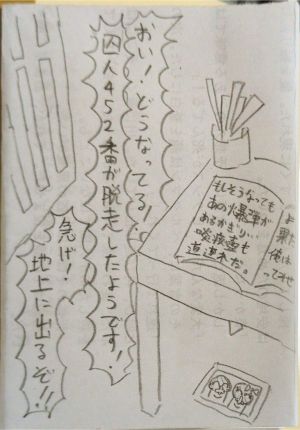 おい！どうなってる！
囚人452番が脱走したようです！！
急げ！
地上に出るぞ！！
もしそうなっても
あの爆弾が
あるかぎり…
啖疾壺も
道連れだ。